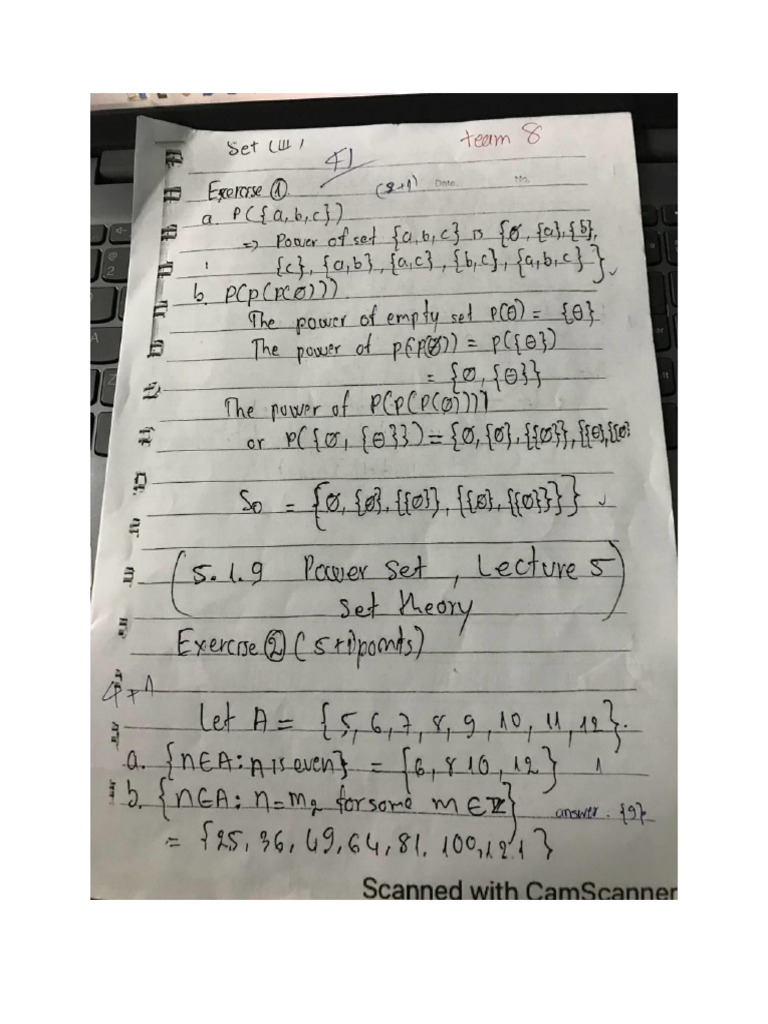 Set (III)
team 8
Exercise ①
(8+1) Date. No.
a. P({a,b,c})
=> Power of set {a,b,c} is {∅, {a},{b},
{c}, {a,b}, {a,c}, {b,c}, {a,b,c}}
b. P(P(P(∅)))
The power of empty set P(∅) = {∅}
The power of P(P(∅)) = P({∅})
= {∅, {∅}}
The power of P(P(P(∅)))
or P({∅, {∅}}) = {∅, {∅}, {{∅}}, {{∅},{{∅}
So = {∅, {∅}, {{∅}}, {{∅}, {{∅}}}}
(5.1.9 Power set, Lecture 5
set theory)
Exercise ② (5+1)points)
4+1
Let A = {5, 6, 7, 8, 9, 10, 11, 12}.
a. {n∈A: n is even} = {6, 8 10, 12} 1
b. {n∈A: n=m2 for some m ∈ Z} answer: {9}
= {25, 36, 49, 64, 81. 100, 121}
Scanned with CamScanner